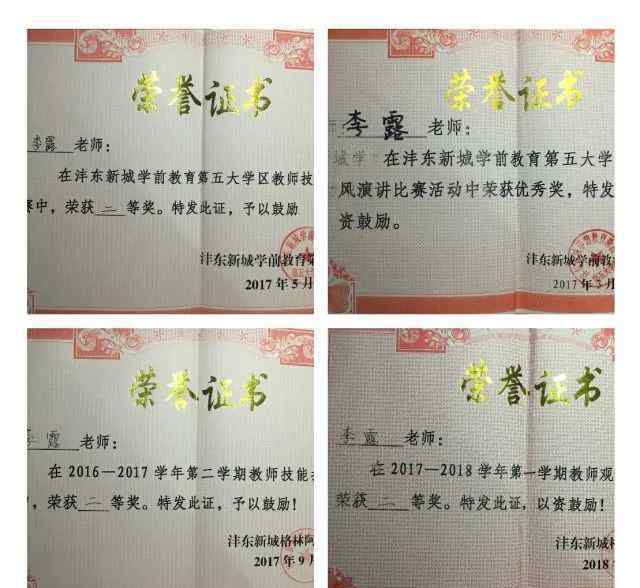 荣誉证书
李露 老师：
在沣东新城学前教育第五大学区教师技
赛中，荣获 二 等奖。特发此证，予以鼓励
沣东新城学前教育第
2017 年 5 月
荣誉证书
李露 老师：
城学 在沣东新城学前教育第五大学
风演讲比赛活动中荣获优秀奖，特发
资鼓励。
沣东新城学前教
2017 年 3 月
荣誉证书
李露 老师：
在 2016—2017 学年第二学期教师技能
，荣获 二 等奖。特发此证，予以鼓励！
沣东新城格林阿
2017 年 9 月
荣誉证书
李露 老师：
在 2017—2018 学年第一学期教师观
荣获 二 等奖。特发此证，以资鼓励！
沣东新城格
2018